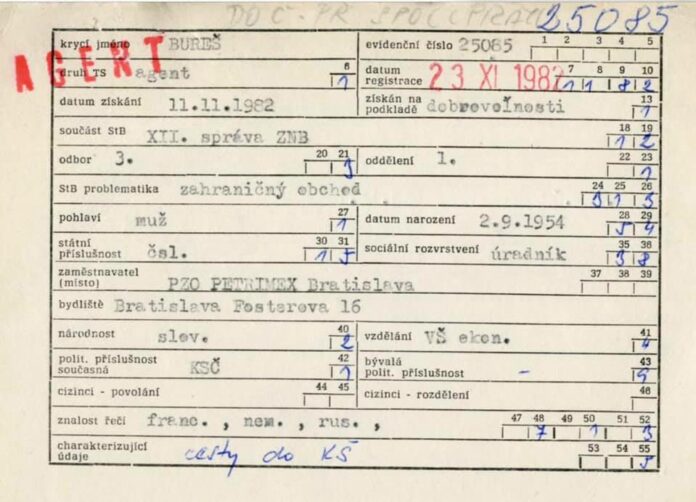 DO Č-PR SPOL. 25085
AGENT
krycí jméno BUREŠ evidenční číslo 25085 1 2 3 4 5
druh TS agent 6 1 datum registrace 23 XI. 1982 7 8 9 10 1 1 8 2
datum získání 11.11.1982 získán na podkladě dobrovoľnosti 13 1
součást StB XII. správa ZNB 18 19 1 2
odbor 3. 20 21 3 oddělení 1. 22 23 1
StB problematika zahraničný obchod 24 25 26 3 1 3
pohlaví muž 27 1 datum narození 2.9.1954 28 29 5 4
státní příslušnost čsl. 30 31 1 5 sociální rozvrstvení úradník 35 36 3 8
zaměstnavatel (místo) PZO PETRIMEX Bratislava 37 38 39
bydliště Bratislava Fosterova 16
národnost slov. 40 2 vzdělání VŠ ekon. 41 4
polit. příslušnost současná KSČ 42 1 bývalá polit. příslušnost - 43 9
cizinci - povolání 44 45 cizinci - rozdělení 46
znalost řečí franc., nem., rus., 47 48 49 50 51 52 7 1 3
charakterizující údaje cesty do KŠ 53 54 55 5